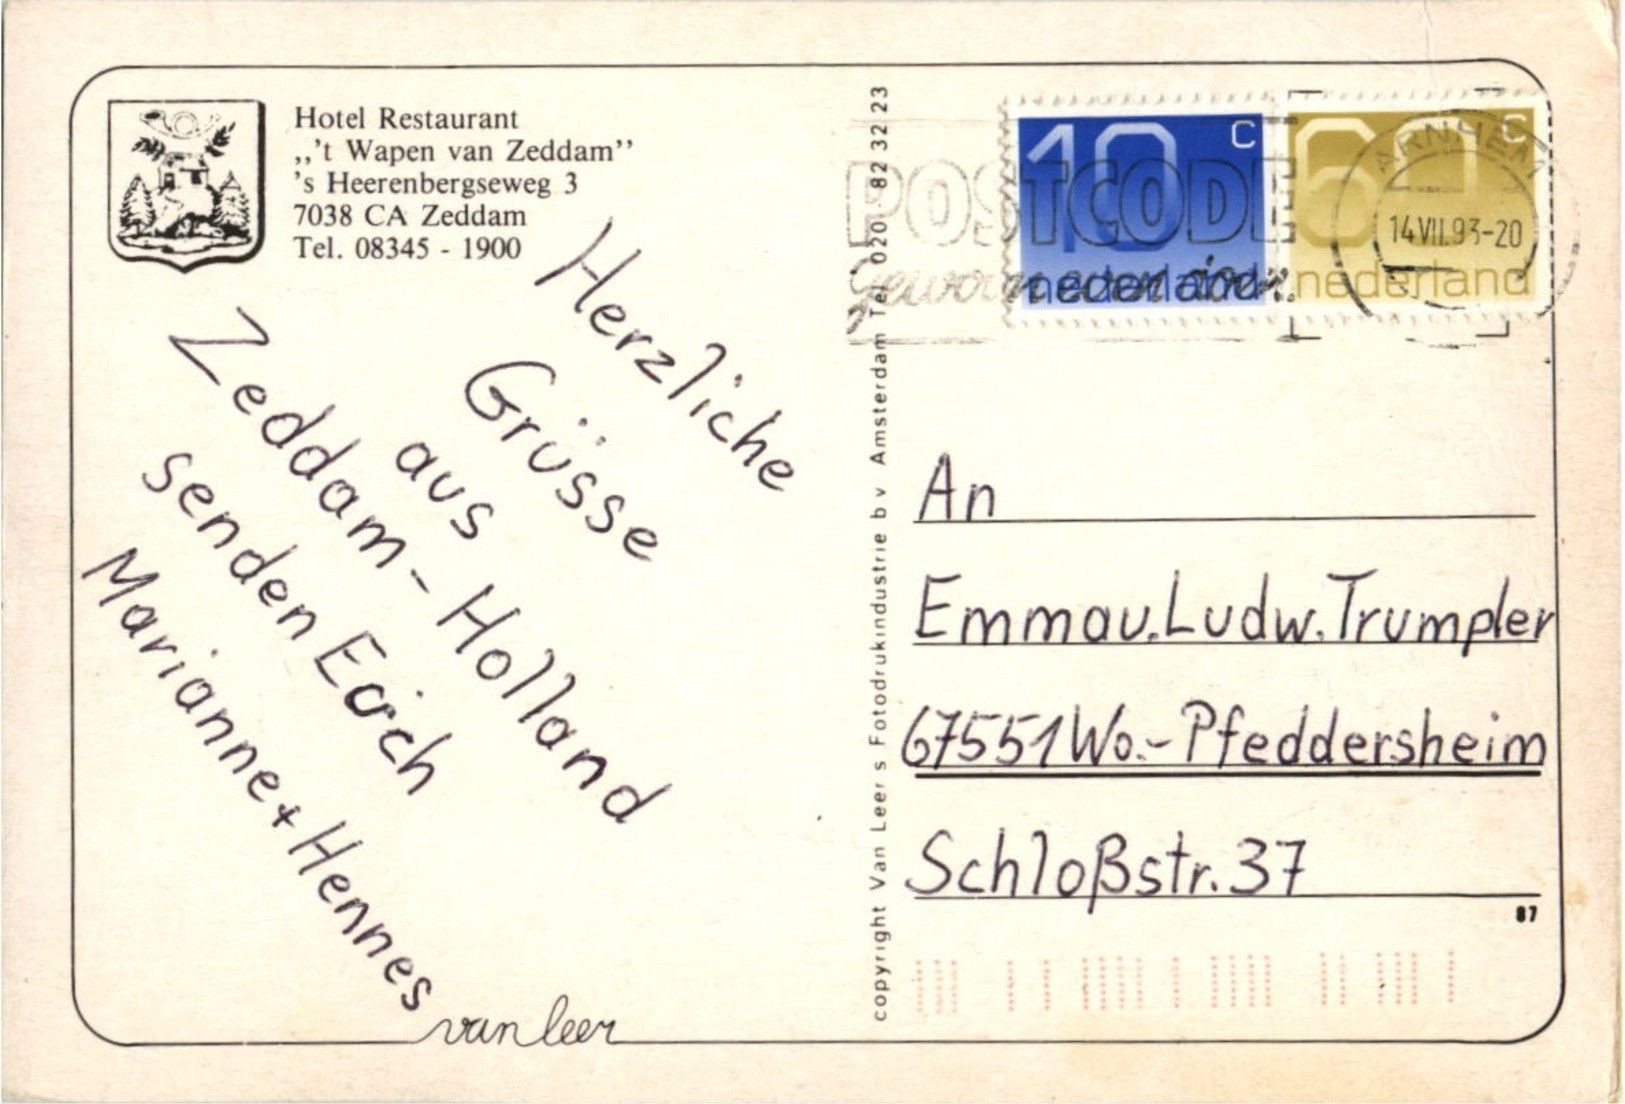 Hotel Restaurant
,,'t Wapen van Zeddam''
's Heerenbergseweg 3
7038 CA Zeddam
Tel. 08345 - 1900
Herzliche
Grüsse
aus
Zeddam - Holland
senden Erich
Marianne + Hennes
van leer
copyright Van Leer s Fotodrukindustrie b v Amsterdam Tel 020 - 82 32 23
10 c
nederland
c
nederland
POSTCODE
Gewoon even doen.
ARNHEM
14 VII.93-20
An
Emma u. Ludw. Trumpler
67551 Wo.- Pfeddersheim
Schloßstr. 37
87